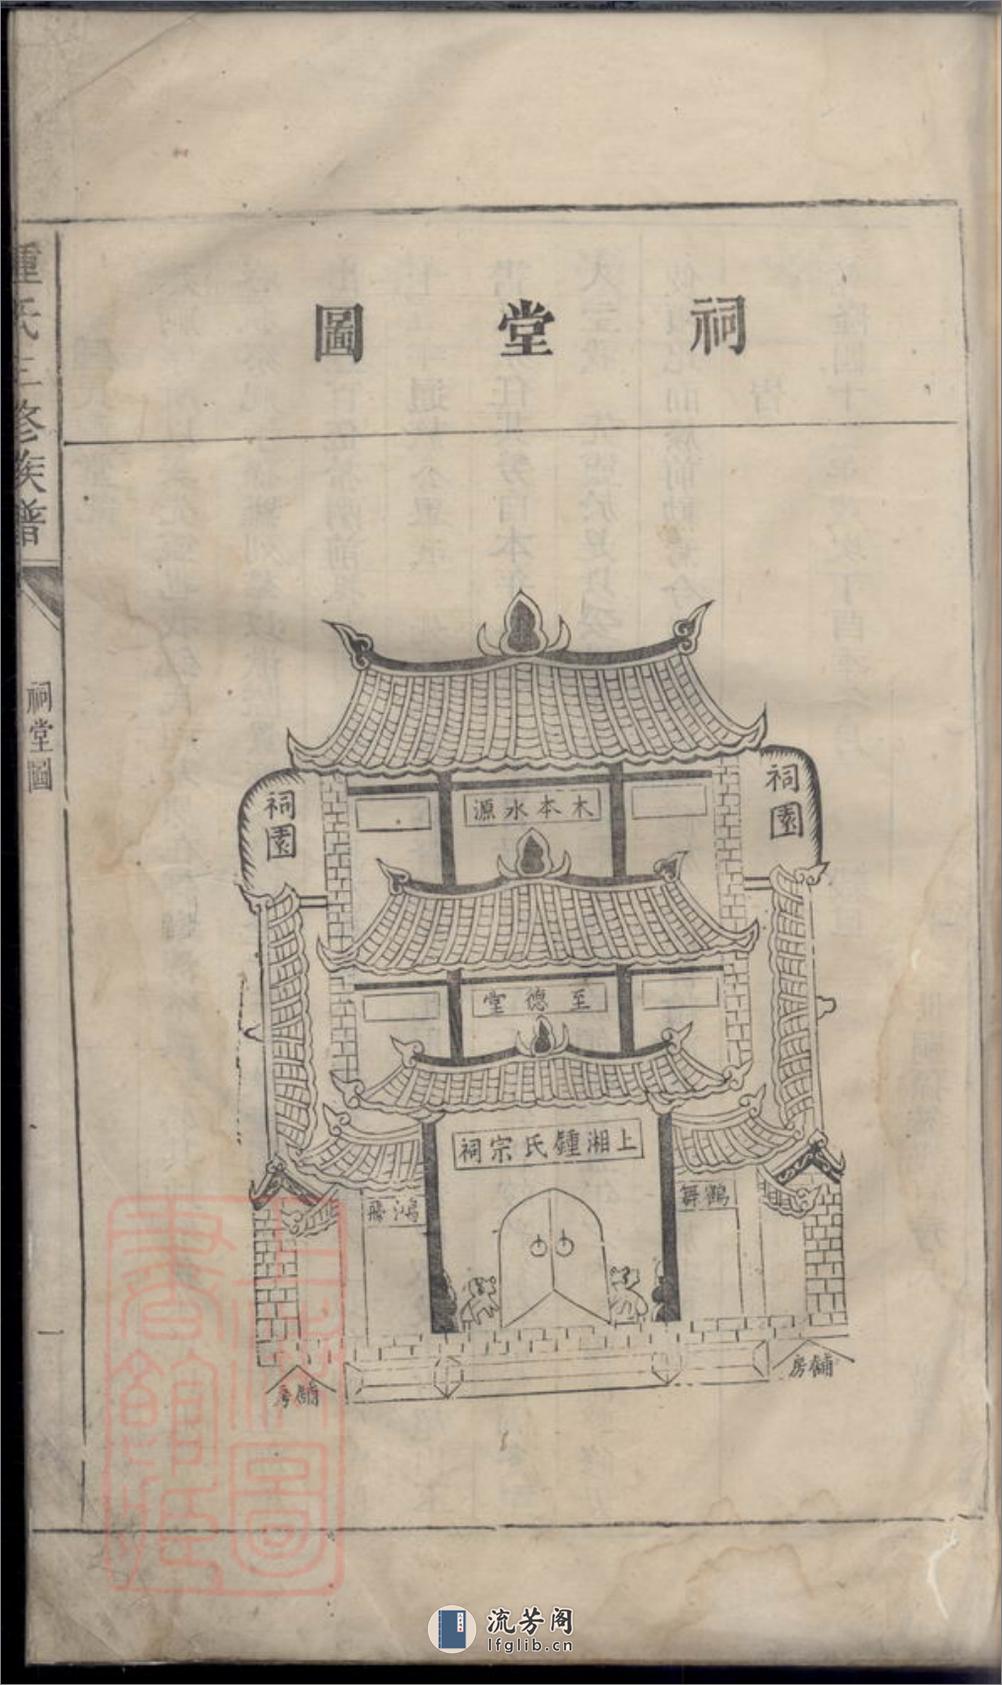 祠堂圖
鍾氏三修族譜
祠堂圖
一
祠園
祠園
木本水源
至德堂
上湘鍾氏宗祠
鶴舞
鴻飛
舖房
舖房
流芳阁
lfglib.cn